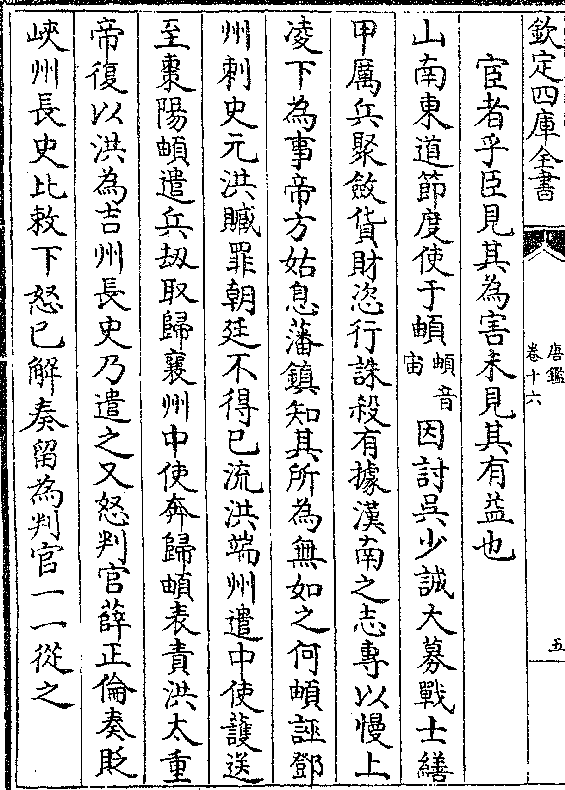 欽定四庫全書
唐鑑
卷十六
五
宦者乎臣見其為害未見其有益也
山南東道節度使于頔頔音宙因討吳少誠大募戰士繕
甲厲兵聚斂貨財恣行誅殺有據漢南之志專以慢上
凌下為事帝方姑息藩鎮知其所為無如之何頔誣鄧
州刺史元洪贓罪朝廷不得已流洪端州遣中使護送
至棗陽頔遣兵刼取歸襄州中使奔歸頔表責洪太重
帝復以洪為吉州長史乃遣之又怒判官薛正倫奏貶
峽州長史比敕下怒已解奏留為判官一一從之